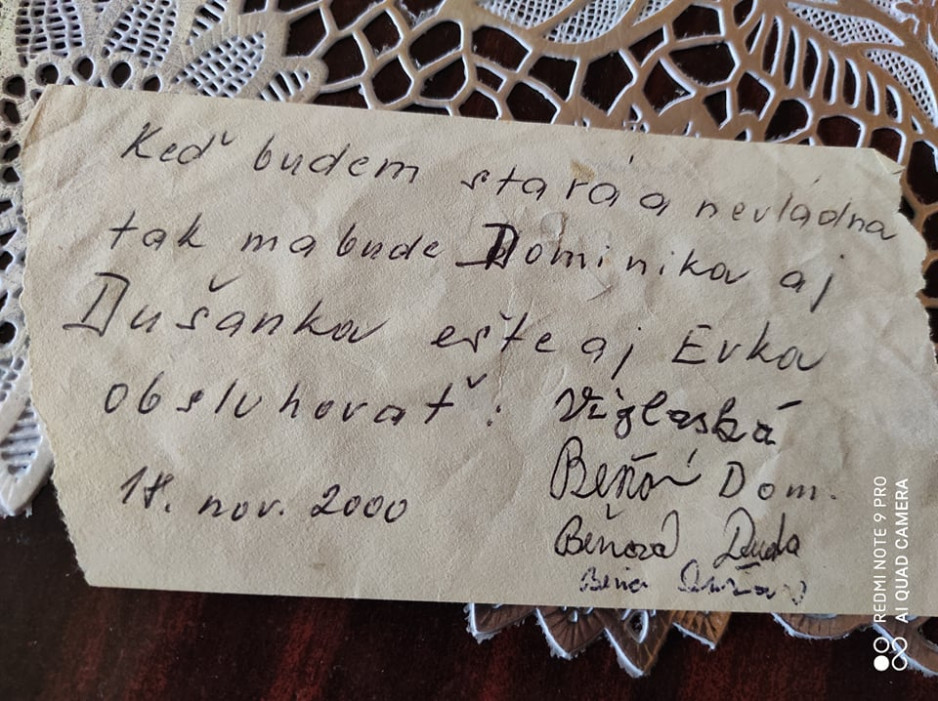 Keď budem stará a nevládna
tak ma bude Dominika aj
Dušanka ešte aj Evka
obsluhovať:
Víglaská
Beňová Dom.
18. nov. 2000
Beňová
REDMI NOTE 9 PRO
AI QUAD CAMERA